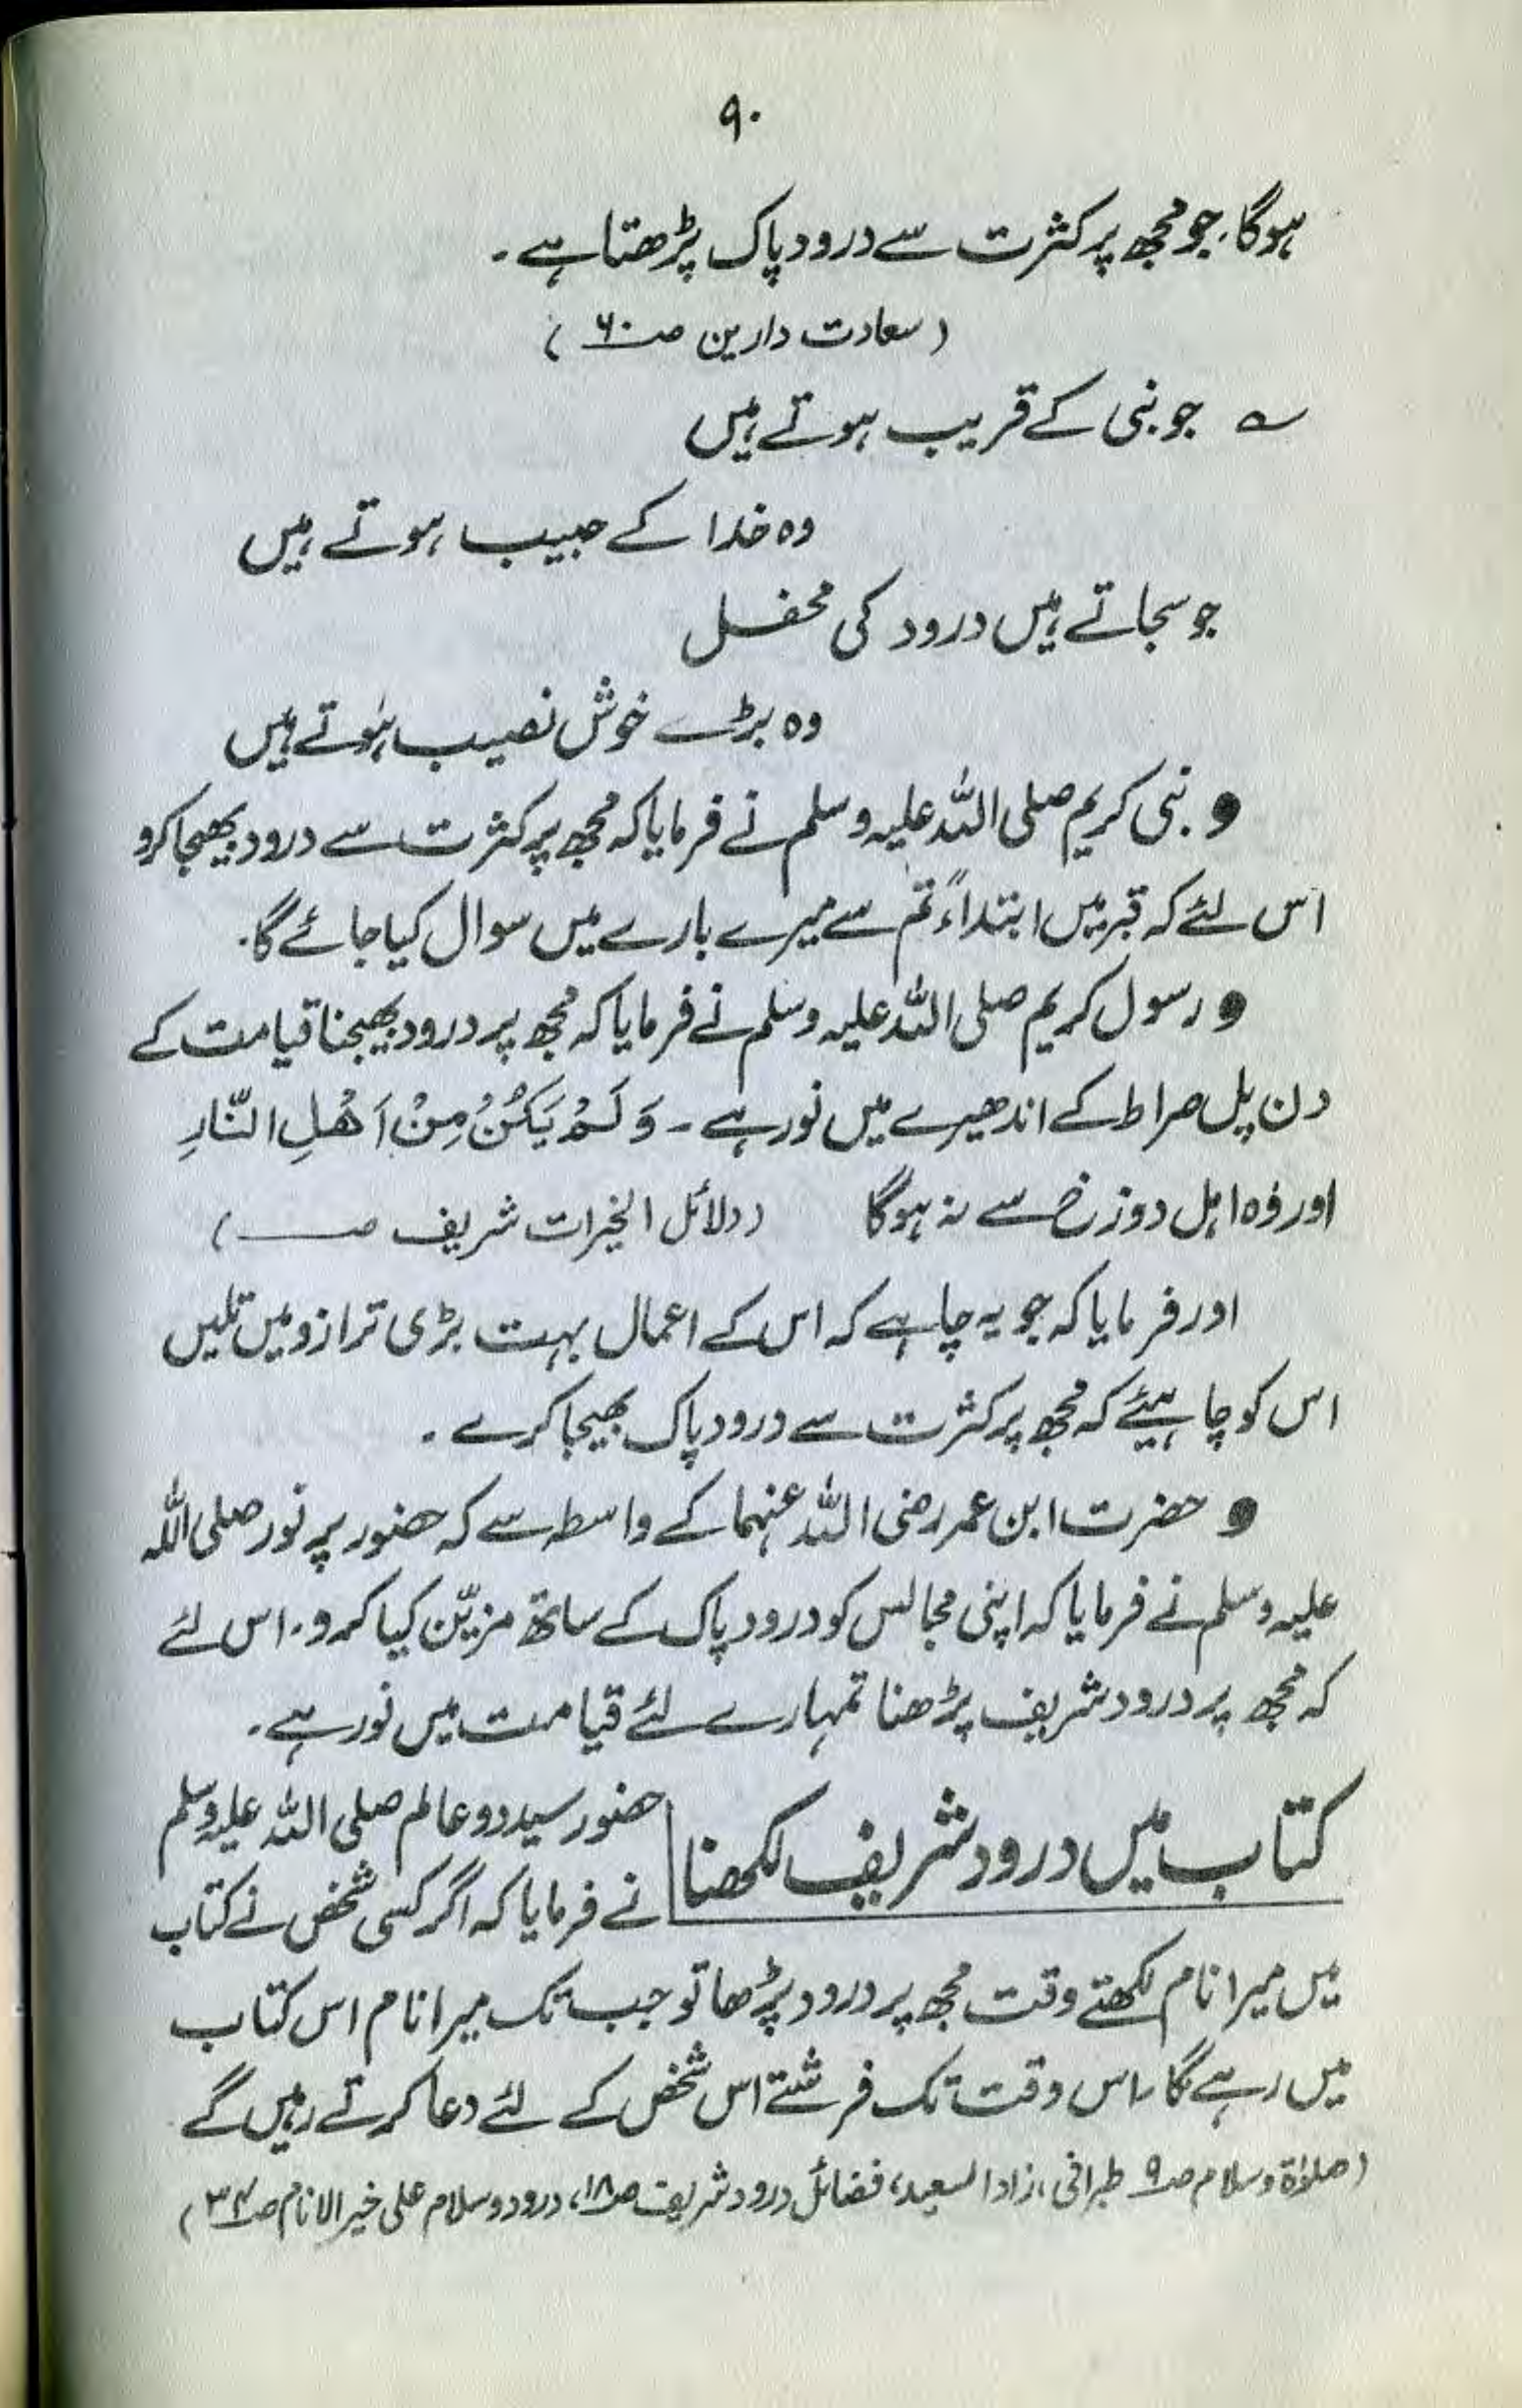 ۹۰
ہوگا، جو مجھ پر کثرت سے درود پاک پڑھتا ہے ۔
(سعادت دارین صـ ۶۰)
؎ جو نبی کے قریب ہوتے ہیں
وہ خدا کے حبیب ہوتے ہیں
جو سجاتے ہیں درود کی محفل
وہ بڑے خوش نصیب ہوتے ہیں
● نبی کریم صلی اللہ علیہ وسلم نے فرمایا کہ مجھ پر کثرت سے درود بھیجا کرو
اس لئے کہ قبر میں ابتداءً تم سے میرے بارے میں سوال کیا جائے گا۔
● رسول کریم صلی اللہ علیہ وسلم نے فرمایا کہ مجھ پر درود بھیجنا قیامت کے
دن پل صراط کے اندھیرے میں نور ہے ۔ وَلَمْ یَکُنْ مِنْ اَھْلِ النَّارِ
اور وہ اہل دوزخ سے نہ ہوگا (دلائل الخیرات شریف صـ)
اور فرمایا کہ جو یہ چاہے کہ اس کے اعمال بہت بڑی ترازو میں تلیں
اس کو چاہیئے کہ مجھ پر کثرت سے درود پاک بھیجا کرے ۔
● حضرت ابن عمر رضی اللہ عنہما کے واسطہ سے کہ حضور پر نور صلی اللہ
علیہ وسلم نے فرمایا کہ اپنی مجالس کو درود پاک کے ساتھ مزیّن کیا کرو ۔ اس لئے
کہ مجھ پر درود شریف پڑھنا تمہارے لئے قیامت میں نور ہے ۔
کتاب میں درود شریف لکھنا
حضور سید دو عالم صلی اللہ علیہ وسلم
نے فرمایا کہ اگر کسی شخص نے کتاب
میں میرا نام لکھتے وقت مجھ پر درود پڑھا تو جب تک میرا نام اس کتاب
میں رہے گا، اس وقت تک فرشتے اس شخص کے لئے دعا کرتے رہیں گے
(صلوٰۃ وسلام صـ ۹ طبرانی، زاد السعید، فضائل درود شریف صـ ۱۸، درود وسلام علی خیر الانام صـ)